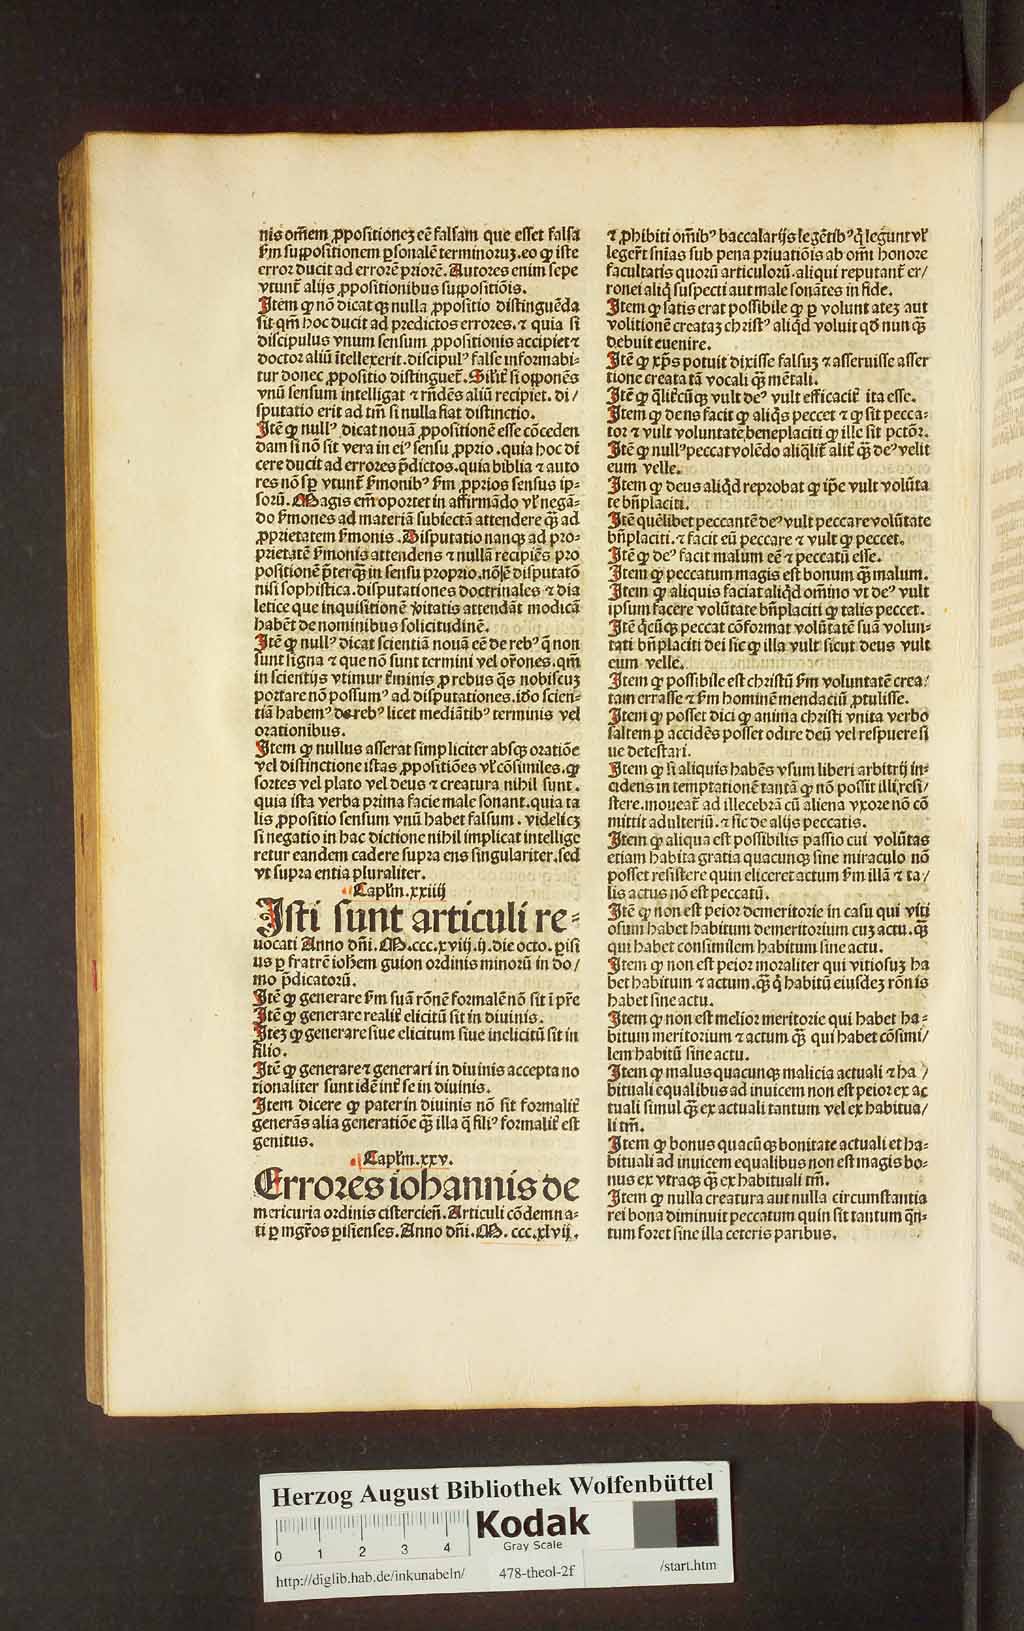 nis om̄em ꝓpositionez eē falsam que esset falsa
ẜm suppositionem ꝑsonalē terminoruz.eo ꝙ iste
error ducit ad errorē priorē. Autores enim sepe
vtunt᷑ alijs ꝓpositionibus suppositiōis.
Item ꝙ nō dicat ꝙ nulla ꝓpositio distinguēda
sit qm̄ hoc ducit ad predictos errores. ⁊ quia si
discipulus vnum sensum ꝓpositionis accipiet ⁊
doctor aliū ītellexerit.discipulꝰ false informabi-
tur donec ꝓpositio distinguet᷑. Silit᷑ si opponēs
vnū sensum intelligat ⁊ rn̄dēs aliū recipiet. di/
sputatio erit ad tm̄ si nulla fiat distinctio.
Itē ꝙ nullꝰ dicat nouā ꝓpositionē esse cōceden
dam si nō sit vera in eiꝰ sensu ꝓprio .quia hoc di
cere ducit ad errores p̄dictos.quia biblia ⁊ auto
res nō sꝑ vtunt᷑ ẜmonibꝰ ẜm ꝓprios sensus ip-
sorū. Magis em̄ oportet in affirmādo vꝉ negā-
do ẜmones ad materiā subiectā attendere q̄ꝫ ad
ꝓprietatem ẜmonis .Disputatio nanqꝫ ad pro-
prietatē ẜmonis attendens ⁊ nullā recipiēs pro
positionē p̄terq̄ꝫ in sensu proprio.nō ē disputatō
nisi sophistica.disputationes doctrinales ⁊ dia
letice que inquisitionē v̓itatis attendāt modicā
habēt de nominibus solicitudinē.
Itē ꝙ nullꝰ dicat scientiā nouā eē de rebꝰ q̄ non
sunt signa ⁊ que nō sunt termini vel or̄ones. qm̄
in scientijs vtimur t̓minis pro rebus q̄s nobiscuz
portare nō possumꝰ ad disputationes.iđo scien-
tiā habemꝰ de rebꝰ licet mediātibꝰ terminis vel
orationibus.
Item ꝙ nullus asserat simpliciter absqꝫ oratiōe
vel distinctione istas ꝓpositiōes vꝉ cōsimiles. ꝙ
sortes vel plato vel deus ⁊ creatura nihil sunt.
quia ista verba prima facie male sonant.quia ta
lis ꝓpositio sensum vnū habet falsum . videlicꝫ
si negatio in hac dictione nihil implicat intellige
retur eandem cadere supra ens singulariter.sed
vt supra entia pluraliter.
Capl̄m.xxiiij
Isti sunt articuli re-
uocati Anno dn̄i.M.ccc.xviij.ij.die octo. ꝑisi
us ꝑ fratrē ioh̄em guion ordinis minorū in do/
mo p̄dicatorū.
Itē ꝙ generare ẜm suā rōnē formalē nō sit ī pr̄e
Itē ꝙ generare realit᷑ elicitū sit in diuinis.
Itez ꝙ generare siue elicitum siue inelicitū sit in
filio.
Itē ꝙ generare ⁊ generari in diuinis accepta no
tionaliter sunt idē int᷑ se in diuinis.
Item dicere ꝙ pater in diuinis nō sit formalit᷑
generās alia generatiōe q̄ꝫ illa q̄ filiꝰ formalit᷑ est
genitus.
Capl̄m.xxv.
Errores iohannis de
mercuria ordinis cistercieñ. Articuli cōdemna-
ti ꝑ mgr̄os ꝑisienses. Anno dn̄i. M. ccc.xlvij.
⁊ ꝓhibiti om̄ibꝰ baccalarijs legētibꝰ q̇ legunt vꝉ
leger̄t sn̄ias sub pena priuatiōis ab om̄i honore
facultatis quorū articulorū .aliqui reputant᷑ er/
ronei aliq̇ suspecti aut male sonātes in fide.
Item ꝙ satis erat possibile ꝙ ꝑ voluntatez aut
volitionē creataz christꝰ aliq̇d voluit qđ nunq̄ꝫ
debuit euenire.
Itē ꝙ xp̄s potuit dixisse falsuz ⁊ asseruisse asser
tione creata tā vocali q̄ꝫ mētali.
Itē ꝙ q̄lit᷑cūqꝫ vult deꝰ vult efficacit᷑ ita esse.
Item ꝙ deus facit ꝙ aliq̇s peccet ⁊ ꝙ sit pecca-
tor ⁊ vult voluntate beneplaciti ꝙ ille sit pctōꝛ.
Itē ꝙ nullꝰ peccat volēdo aliq̇lit᷑ alit᷑ q̄ꝫ deꝰ velit
eum velle.
Item ꝙ deus aliq̇d reprobat ꝙ ip̄e vult volūta
te bn̄placiti.
Itē quēlibet peccantē deꝰ vult peccare volūtate
bn̄placiti. ⁊ facit eū peccare ⁊ vult ꝙ peccet.
Itē ꝙ deꝰ facit malum eē ⁊ peccatū esse.
Item ꝙ peccatum magis est bonum q̄ꝫ malum.
Item ꝙ aliquis faciat aliq̇d om̄ino vt deꝰ vult
ipsum facere volūtate bn̄placiti ꝙ talis peccet.
Itē q̇cūqꝫ peccat cōformat volūtatē suā volun-
tati bn̄placiti dei sic ꝙ illa vult sicut deus vult
eum velle.
Item ꝙ possibile est christū ẜm voluntatē crea-
tam errasse ⁊ ẜm hominē mendaciū ꝓtulisse.
Item ꝙ posset dici ꝙ anima christi vnita verbo
saltem ꝑ accidēs posset odire deū vel respuere si
ue detestari.
Item ꝙ si aliquis habēs vsum liberi arbitrij in-
cidens in temptationē tantā ꝙ nō possit illi resi/
stere.moueat᷑ ad illecebrā cū aliena vxore nō cō
mittit adulteriū. ⁊ sic de alijs peccatis.
Item ꝙ aliqua est possibilis passio cui volūtas
etiam habita gratia quacunqꝫ sine miraculo nō
posset resistere quin eliceret actum ẜm illā ⁊ ta/
lis actus nō est peccatū.
Itē ꝙ non est peior demeritorie in casu qui viti
osum habet habitum demeritorium cuz actu. q̄ꝫ
qui habet consimilem habitum sine actu.
Item ꝙ non est peior moraliter qui vitiosuz ha
bet habitum ⁊ actum. q̄ꝫ q̇ habitū eiusdez rōnis
habet sine actu.
Item ꝙ non est melior meritorie qui habet ha-
bitum meritorium ⁊ actum q̄ꝫ qui habet cōsimi/
lem habitū sine actu.
Item ꝙ malus quacunqꝫ malicia actuali ⁊ ha/
bituali equalibus ad inuicem non est peior ex ac
tuali simul q̄ꝫ ex actuali tantum vel ex habitua/
li tm̄.
Item ꝙ bonus quacūqꝫ bonitate actuali et ha-
bituali ad inuicem equalibus non est magis bo-
nus ex vtraqꝫ q̄ꝫ ex habituali tm̄.
Item ꝙ nulla creatura aut nulla circumstantia
rei bona diminuit peccatum quin sit tantum q̄n-
tum foret sine illa ceteris paribus.
Herzog August Bibliothek Wolfenbüttel
Kodak
Gray Scale
0 1 2 3 4
http://diglib.hab.de/inkunabeln/ 478-theol-2f /start.htm